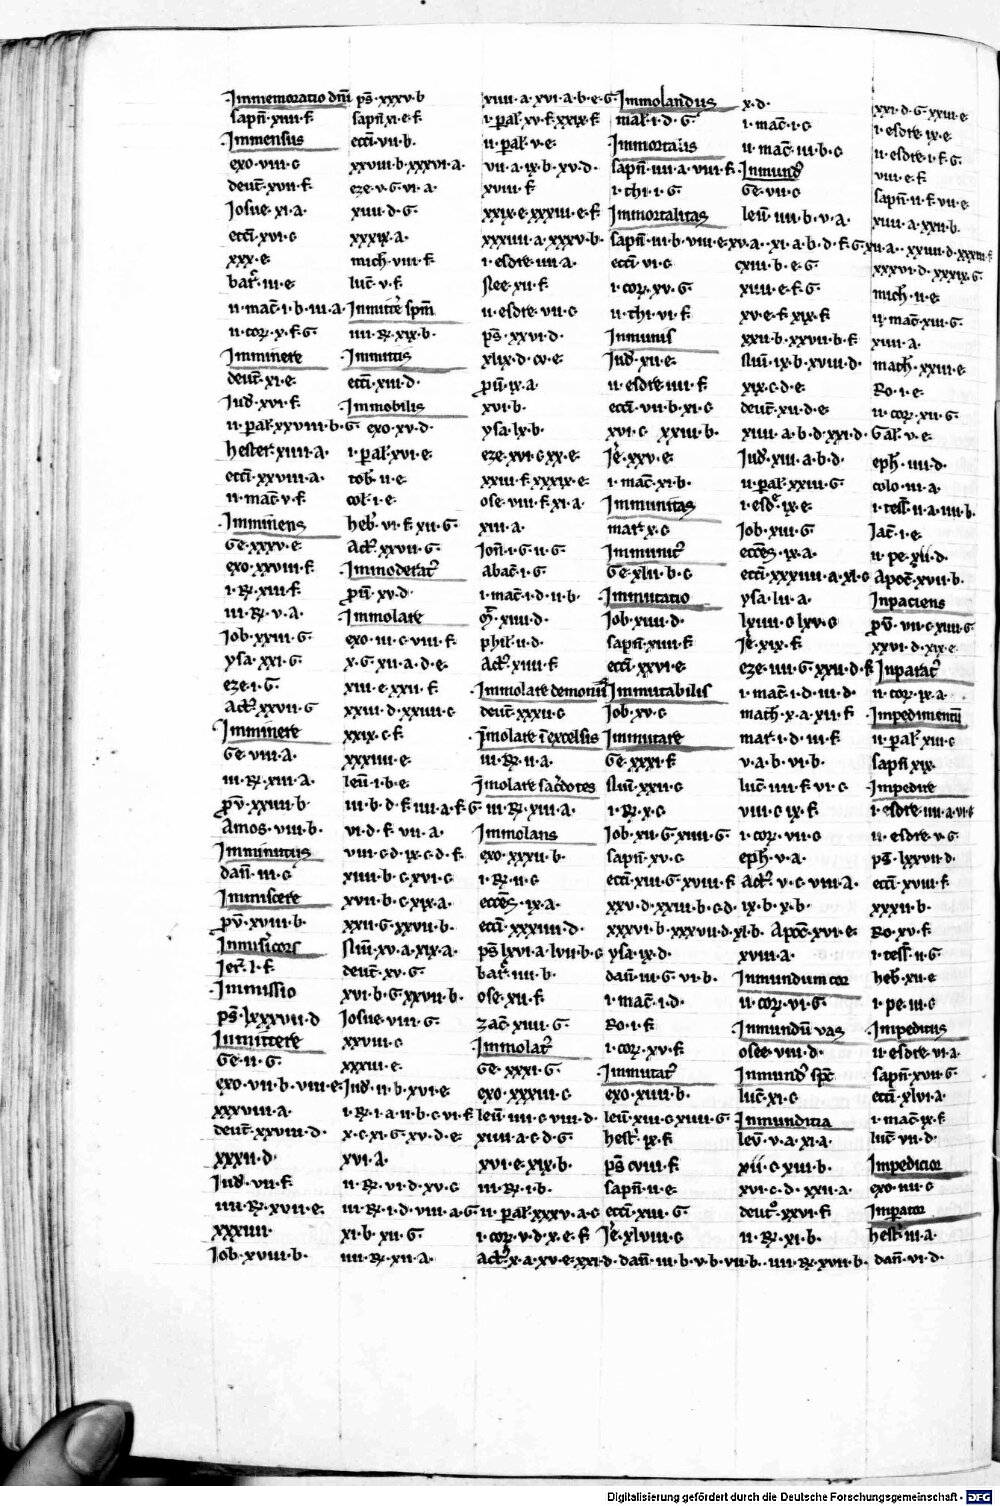 Immemoratio dni
sapn· xiiii·f
Immensus
exo·viii·c
deut·xvii·f·
Iosue·xi·a·
ecci·xvi·c
xxx·e·
bar·iii·e·
ii·mac·i·b·iii·a·
ii·cor·x·f·G·
Imminere
deut·xi·e·
Iud·xvi·f·
ii·pal·xxviii·b·G·
hester·xiiii·a·
ecci·xxviii·a·
ii·mac·v·f·
Imminens
Ge·xxxv·e·
exo·xxviii·f·
i·R·xiii·f·
iii·R·v·a·
Iob·xxiii·G·
ysa·xxi·G·
eze·i·G·
Act·xxvii·G
Imminere
Ge·viii·a·
iii·R·xiii·a·
prov·xxiiii·b·
Amos·viii·b·
Imminutus
dan·iii·c
Inmiscere
pv·xviii·b·
Inmisicors
Ier·l·f·
Immissio
ps·lxxxvii·d
Inmittere
Ge·ii·G·
exo·vii·b·viii·e·
xxxviii·a·
deut·xxviii·d·
xxxii·d·
Iud·vii·f·
iiii·R·xvii·e·
xxxiiii·
Iob·xviii·b·
ps·xxxv·b
sapn·xi·e·f·
ecci·vii·b·
xxviii·b·xxxvi·a·
eze·v·G·vi·a·
xiiii·d·G·
xxxix·a·
mich·viii·f·
luc·v·f·
Inmitte spm
iiii·R·xix·b·
Immitis
ecci·xiii·d·
Immobilis
exo·xv·d·
i·pal·xvi·e·
tob·ii·e·
col·i·e·
heb·vi·f·xii·G·
Act·xxvii·G·
Immoderat
pu·xv·d·
Immolare
exo·iii·c·viii·f·
x·G·xii·a·d·e·
xiii·e·xxii·f·
xxiii·d·xxiiii·c
xxix·c·f·
xxxiiii·e·
leui·i·b·e·
iii·b·d·f·iiii·a·f·G·
vi·d·f·vii·a·
viii·c·d·ix·c·d·f·
xiiii·b·c·xvi·c
xvii·b·c·xix·a·
xxii·G·xxvii·b·
num·xv·a·xix·a·
deut·xv·G·
xvi·b·G·xxvii·b·
Iosue·viii·G·
xxviii·c
xxxiii·e·
Iud·ii·b·xvi·e·
i·R·i·a·ii·b·c·vi·f·
x·c·xi·G·xv·d·e·
xvi·a·
ii·R·vi·d·xv·c
iii·R·i·d·viii·a·G·
xi·b·xii·G·
iiii·R·xii·a·
xiiii·a·xvi·a·b·e·G·
i·pal·xv·f·xxix·f·
ii·pal·v·e·
vii·a·ix·b·xv·d·
xviii·f·
xxix·e·xxxiii·e·f·
xxxiiii·a·xxxv·b·
i·esdre·iiii·a·
nee·xii·f·
ii·esdre·vii·c
ps·xxvi·d·
xlix·d·cv·e·
pu·ix·a·
xvi·b·
ysa·lx·b·
eze·xvi·c·xx·e·
xxiii·f·xxxix·e·
ose·viii·f·xi·a·
xiii·a·
Ion·i·G·ii·G·
abac·i·G·
i·mac·i·d·ii·b·
mr·xiiii·d·
phil·ii·d·
Act·xiiii·f·
Immolare demonium
deut·xxxii·c
Imolare i excelsis
iii·R·ii·a·
Imolare sacerdotes
iii·R·xiii·a·
Immolans
exo·xxxii·b·
i·R·ii·c
ecces·ix·a·
ecci·xxxiiii·d·
ps·lxvi·a·lvii·b·c
bar·iiii·b·
ose·xii·f·
zac·xiiii·G·
Immolat
Ge·xxxi·G·
exo·xxxiii·c
leui·iiii·c·viii·d·
xiiii·a·c·d·G·
xvi·e·xix·b·
iii·R·i·b·
ii·pal·xxxv·a·c
i·cor·v·d·x·e·f·
Act·x·a·xv·e·xxi·d·
Immolandus
mal·i·d·G·
Immortalis
sapn·iii·a·viii·f·
i·thi·i·G·
Immortalitas
sapn·iii·b·viii·e·xv·a·
ecci·vi·c
i·cor·xv·G·
ii·thi·vi·f·
Inmunis
Iud·xii·e·
ii·esdre·iiii·f·
ecci·vii·b·xi·c
xvi·c·xxiii·b·
Ie·xxv·e·
i·mac·xi·b·
Immunitas
mar·x·c
Immunit
Ge·xlii·b·c
Inmutatio
Iob·xiiii·d·
sapn·xiiii·f·
ecci·xxvi·e·
Immutabilis
Iob·xv·c
Immutare
Ge·xxxi·f·
num·xxii·c
i·R·x·c
Iob·xii·G·xiiii·G·
sapn·xv·c
ecci·xiii·G·xviii·f·
xxv·d·xxiii·b·c·d·
xxxvi·b·xxxvii·d·xl·b·
ysa·ix·d·
dan·iii·G·vi·b·
i·mac·i·d·
Ro·i·f·
i·cor·xv·f·
Immutat
exo·xiiii·b·
leui·xiii·c·xiiii·G·
hest·ix·f·
ps·cviii·f·
sapn·ii·e·
ecci·xiii·G·
Ie·xlviii·c
dan·iii·b·v·b·vii·b·
x·d·
i·mac·i·c
ii·mac·iii·b·c
Inmund
Ge·vii·c
leui·iiii·b·v·a·
xi·a·b·d·f·G·xii·a·
cxiii·b·e·G·
xiii·e·f·G·
xv·e·f·xix·f·
xxii·b·xxvii·b·f·
num·ix·b·xviii·d·
xix·c·d·e·
deut·xii·d·e·
xiiii·a·b·d·xxi·d·
Iud·xiii·a·b·d·
ii·pal·xxiii·G·
i·esd·ix·e·
Iob·xiii·G·
ecces·ix·a·
ecci·xxxiiii·a·xl·c
ysa·lii·a·
lxiiii·c·lxv·c
Ie·xix·f·
eze·iiii·G·xxii·d·f·
i·mac·i·d·iii·d·
math·x·a·xii·f·
mar·i·d·iii·f·
v·a·b·vi·b·
luc·iiii·f·vi·c
viii·c·ix·f·
i·cor·vii·c
eph·v·a·
Act·v·c·viii·a·
ix·b·x·b·
Apoc·xvi·e·
xviii·a·
Inmundum cor
ii·cor·vi·G·
Inmundu vas
osee·viii·d·
Inmund spc
luc·xi·c
Inmundicia
leu·v·a·xi·a·
xii·c·xiii·b·
xvi·c·d·xxii·a·
deut·xxvi·f·
ii·R·xi·b·
iiii·R·xvii·b·
xxi·d·G·xxiii·e·
i·esdre·ix·e·
ii·esdre·i·f·G·
viii·e·f·
sapn·ii·f·vii·e·
xiiii·a·xxii·b·
xxiiii·d·xxxiii·f·
xxxvi·d·xxxix·G·
mich·ii·e·
ii·mac·xiii·G·
xiiii·a·
math·xxiii·e·
Ro·i·e·
ii·cor·xii·G·
Gal·v·e·
eph·iiii·d·
colo·iii·a·
i·tess·ii·a·iiii·b·
Iac·i·e·
ii·pe·xii·d·
Apoc·xvii·b·
Inpaciens
pv·vii·c·xiiii·G
xxvi·d·xix·e·
Inparat
ii·cor·ix·a·
Impedimentum
ii·pal·xiii·c
sapn·xix·
Impedire
i·esdre·iiii·a·vi·c
ii·esdre·v·G·
ps·lxxvii·d·
ecci·xviii·f·
xxxii·b·
Ro·xv·f·
i·tess·ii·G·
heb·xii·e
i·pe·iii·c
Impeditus
ii·esdre·vi·a·
sapn·xvii·G·
ecci·xlvi·a·
i·mac·ix·f·
luc·vii·d·
Impedicior
exo·iiii·c
Imperator
hest·iii·a·
dan·vi·d·
Digitalisierung gefördert durch die Deutsche Forschungsgemeinschaft - DFG